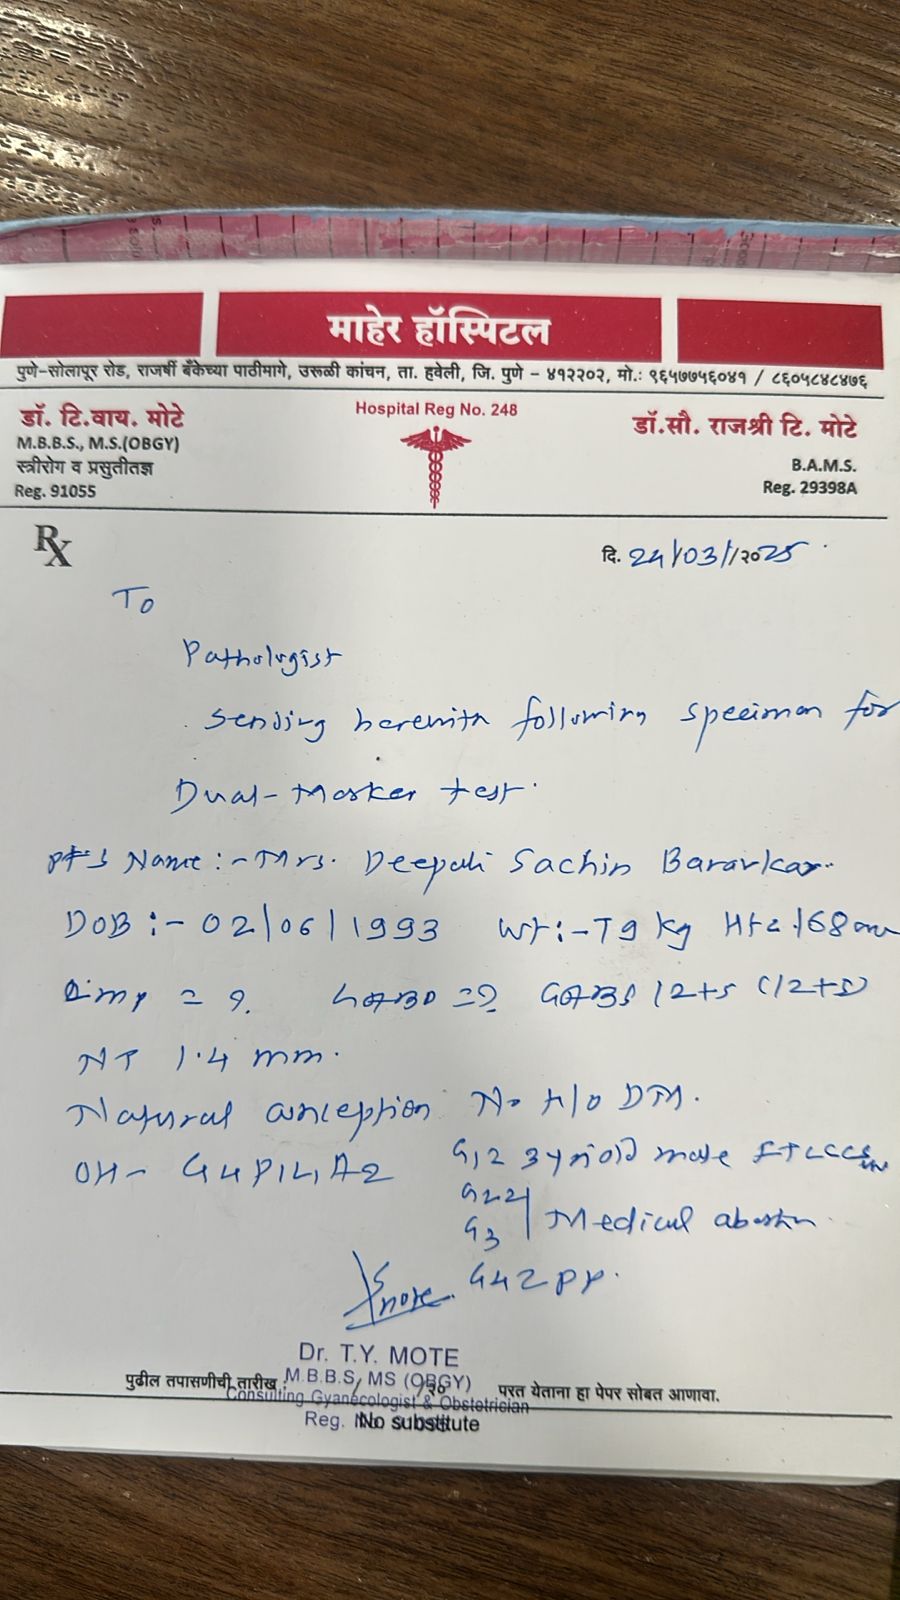 माहेर हॉस्पिटल
पुणे-सोलापूर रोड, राजर्षी बँकेच्या पाठीमागे, उरूळी कांचन, ता. हवेली, जि. पुणे - ४१२२०२, मो.: ९६५७७५६०४१ / ८६०५८४८४७६
डॉ. टि.वाय. मोटे
M.B.B.S., M.S.(OBGY)
स्त्रीरोग व प्रसुतीतज्ञ
Reg. 91055
Hospital Reg No. 248
डॉ.सौ. राजश्री टि. मोटे
B.A.M.S.
Reg. 29398A
Rx
दि. 24/03/२०25
To
Pathologist
Sending herewith following specimen for
Dual-Marker test.
Pt's Name :- Mrs. Deepali Sachin Baravkar
DOB :- 02/06/1993 Wt :- 79 kg Ht = 168 cm
Lmp = ?. GABD = ? GABS 12+5 (12+5)
NT 1.4 mm.
Natural conception No H/o DM.
OH - G4P1L1A2 male
G3 Medical abortion
Dr. T.Y. MOTE
M.B.B.S, MS (OBGY)
Consulting Gyanecologist & Obstetrician
पुढील तपासणीची तारीख / /२० परत येताना हा पेपर सोबत आणावा.
Reg. No substitute